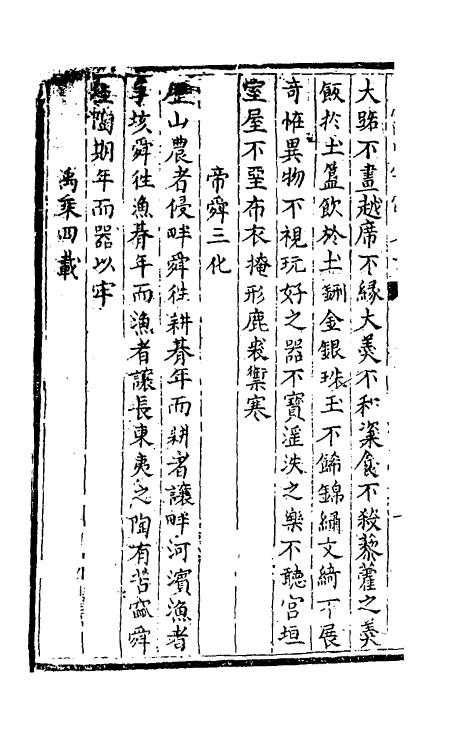 大路不畫越席不緣大羹不和粢食不殺藜藿之羹
飯於土簋飲於土鉶金銀珠玉不餙錦繡文綺不展
奇恠異物不視玩好之器不寶淫泆之樂不聽宮垣
室屋不堊布衣掩形鹿裘禦寒
帝舜三化
歷山農者侵畔舜徃耕朞年而耕者讓畔河濱漁者
爭坻舜徃漁朞年而漁者讓長東夷之陶有苦窳舜
徃陶期年而器以牢
禹乘四載